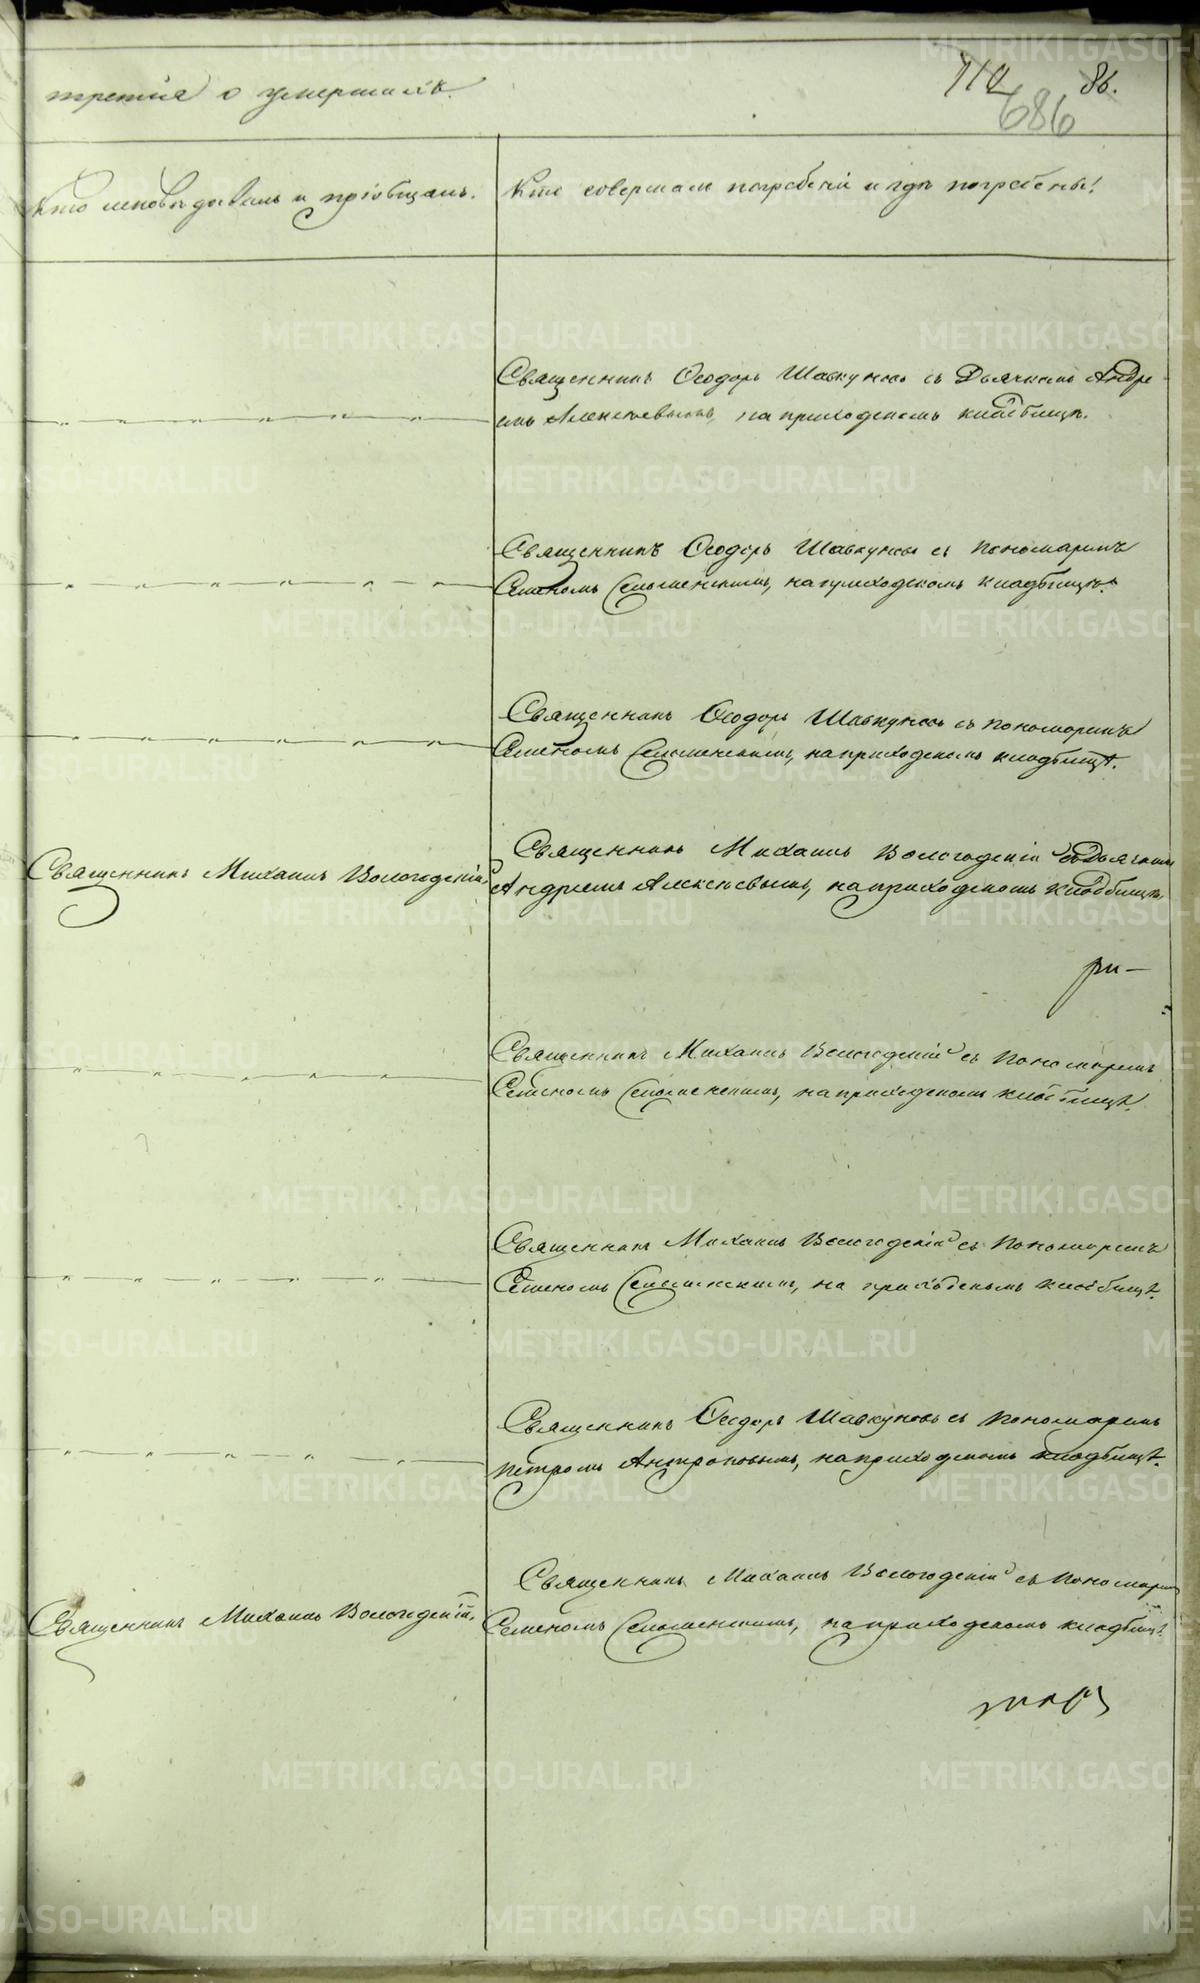 третія о умершихъ.
86.
686
Кто исповѣдывалъ и пріобщалъ.
Кто совершалъ погребеніе и гдѣ погребены?
Священникъ Ѳеодоръ Шавкуновъ съ Дьячкомъ Андре
емъ Алексѣевымъ, на приходскомъ кладбищѣ.
Священникъ Ѳеодоръ Шавкуновъ съ пономаремъ
Семеномъ на приходскомъ кладбищѣ.
Священникъ Ѳеодоръ Шавкуновъ съ пономаремъ
Семеномъ на приходскомъ кладбищѣ.
Священникъ Михаилъ Вологодскій
Священникъ Михаилъ Вологодскій съ Дьячкомъ
Андреемъ Алексѣевымъ, на приходскомъ кладбищѣ.
Священникъ Михаилъ Вологодскій съ пономаремъ
Семеномъ на приходскомъ кладбищѣ.
Священникъ Михаилъ Вологодскій съ пономаремъ
Семеномъ на приходскомъ кладбищѣ.
Священникъ Ѳеодоръ Шавкуновъ съ пономаремъ
Петромъ Антроповымъ, на приходскомъ кладбищѣ.
Священникъ Михаилъ Вологодскій.
Священникъ Михаилъ Вологодскій съ пономаремъ
Семеномъ на приходскомъ кладбищѣ.
METRIKI.GASO-URAL.RU